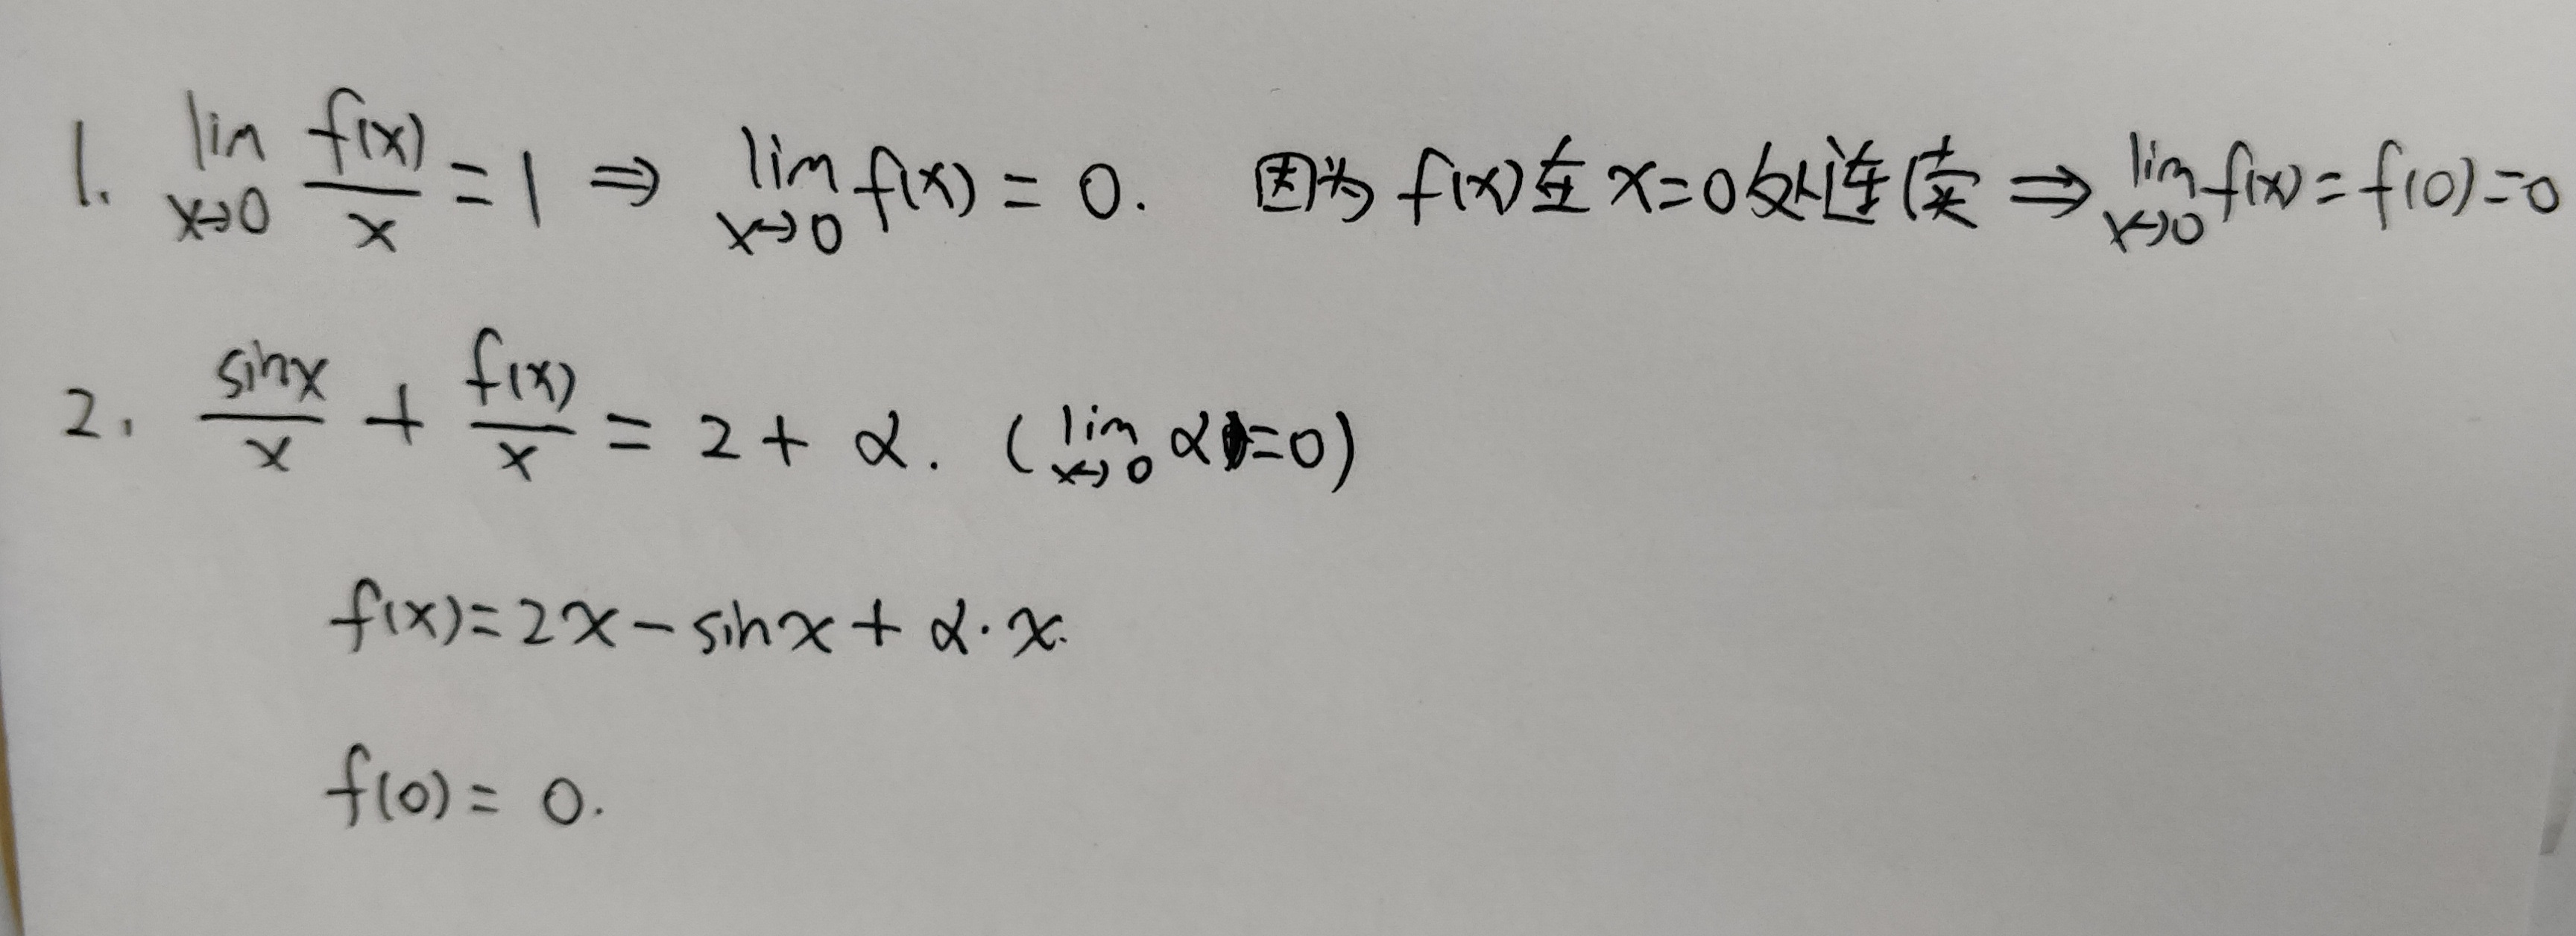 1. lim x→0 f(x)/x = 1 ⇒ lim x→0 f(x) = 0. 因为 f(x)在 x=0处连续 ⇒ lim x→0 f(x) = f(0) = 0
2. sinx/x + f(x)/x = 2 + α. (lim x→0 α = 0)
f(x) = 2x - sinx + α·x.
f(0) = 0.